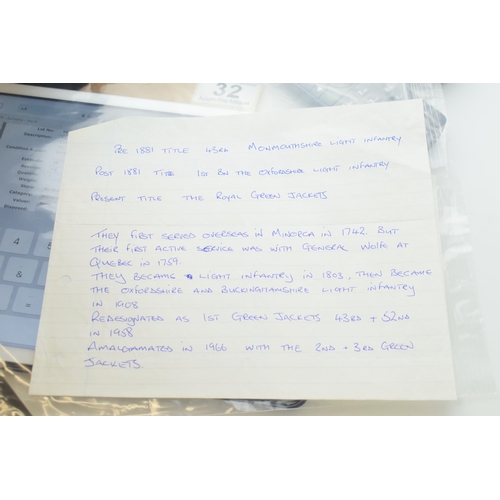 32
Lot No:
Description:
PRE 1881 TITLE 43RD MONMOUTHSHIRE LIGHT INFANTRY
POST 1881 TITLE 1ST BN THE OXFORDSHIRE LIGHT INFANTRY
PRESENT TITLE THE ROYAL GREEN JACKETS
THEY FIRST SERVED OVERSEAS IN MINORCA IN 1742. BUT
THEIR FIRST ACTIVE SERVICE WAS WITH GENERAL WOLFE AT
QUEBEC IN 1759.
THEY BECAME LIGHT INFANTRY IN 1803, THEN BECAME
THE OXFORDSHIRE AND BUCKINGHAMSHIRE LIGHT INFANTRY
IN 1908
REDESIGNATED AS 1ST GREEN JACKETS 43RD + 52ND
IN 1958
AMALGAMATED IN 1966 WITH THE 2ND + 3RD GREEN
JACKETS.
4 5
&
=